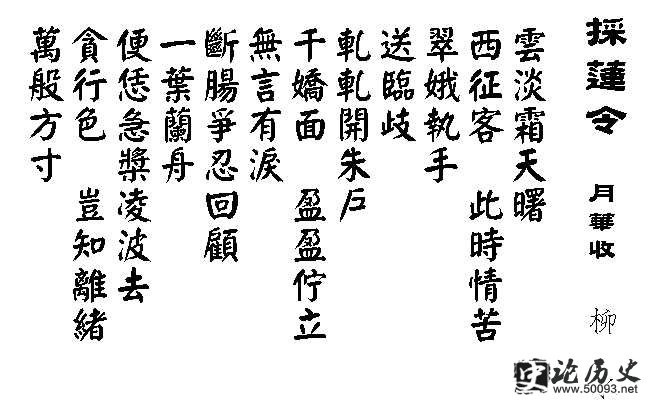 採蓮令 月華收 柳
雲淡霜天曙
西征客 此時情苦
翠娥執手
送臨歧
軋軋開朱戶
千嬌面 盈盈佇立
無言有淚
斷腸爭忍回顧
一葉蘭舟
便恁急槳凌波去
貪行色 豈知離緒
萬般方寸
论历史
www.50093.net